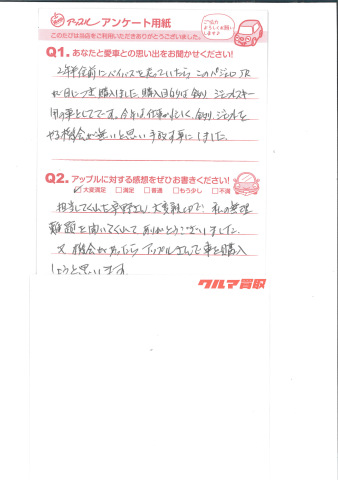 アップル アンケート用紙
ご協力よろしくお願いします!
このたびは当店をご利用いただきありがとうございました。
Q1. あなたと愛車との思い出をお聞かせください!
2年半位前にバイパスを走っていたら このパジェロJR
が目につき購入しました。購入目的は釣り ジェットスキー
用の車としてです。今年は仕事が忙しく、釣り、ジェットを
やる機会が無いと思い手放す事にしました。
Q2. アップルに対する感想をぜひお書きください!
☑大変満足 □満足 □普通 □もう少し □不満
担当してくれた さん 大変親切で、私の無理
難題を聞いてくれて ありがとうございました。
又 機会があったら アップルさんで車を購入
しようと思います。
クルマ買取